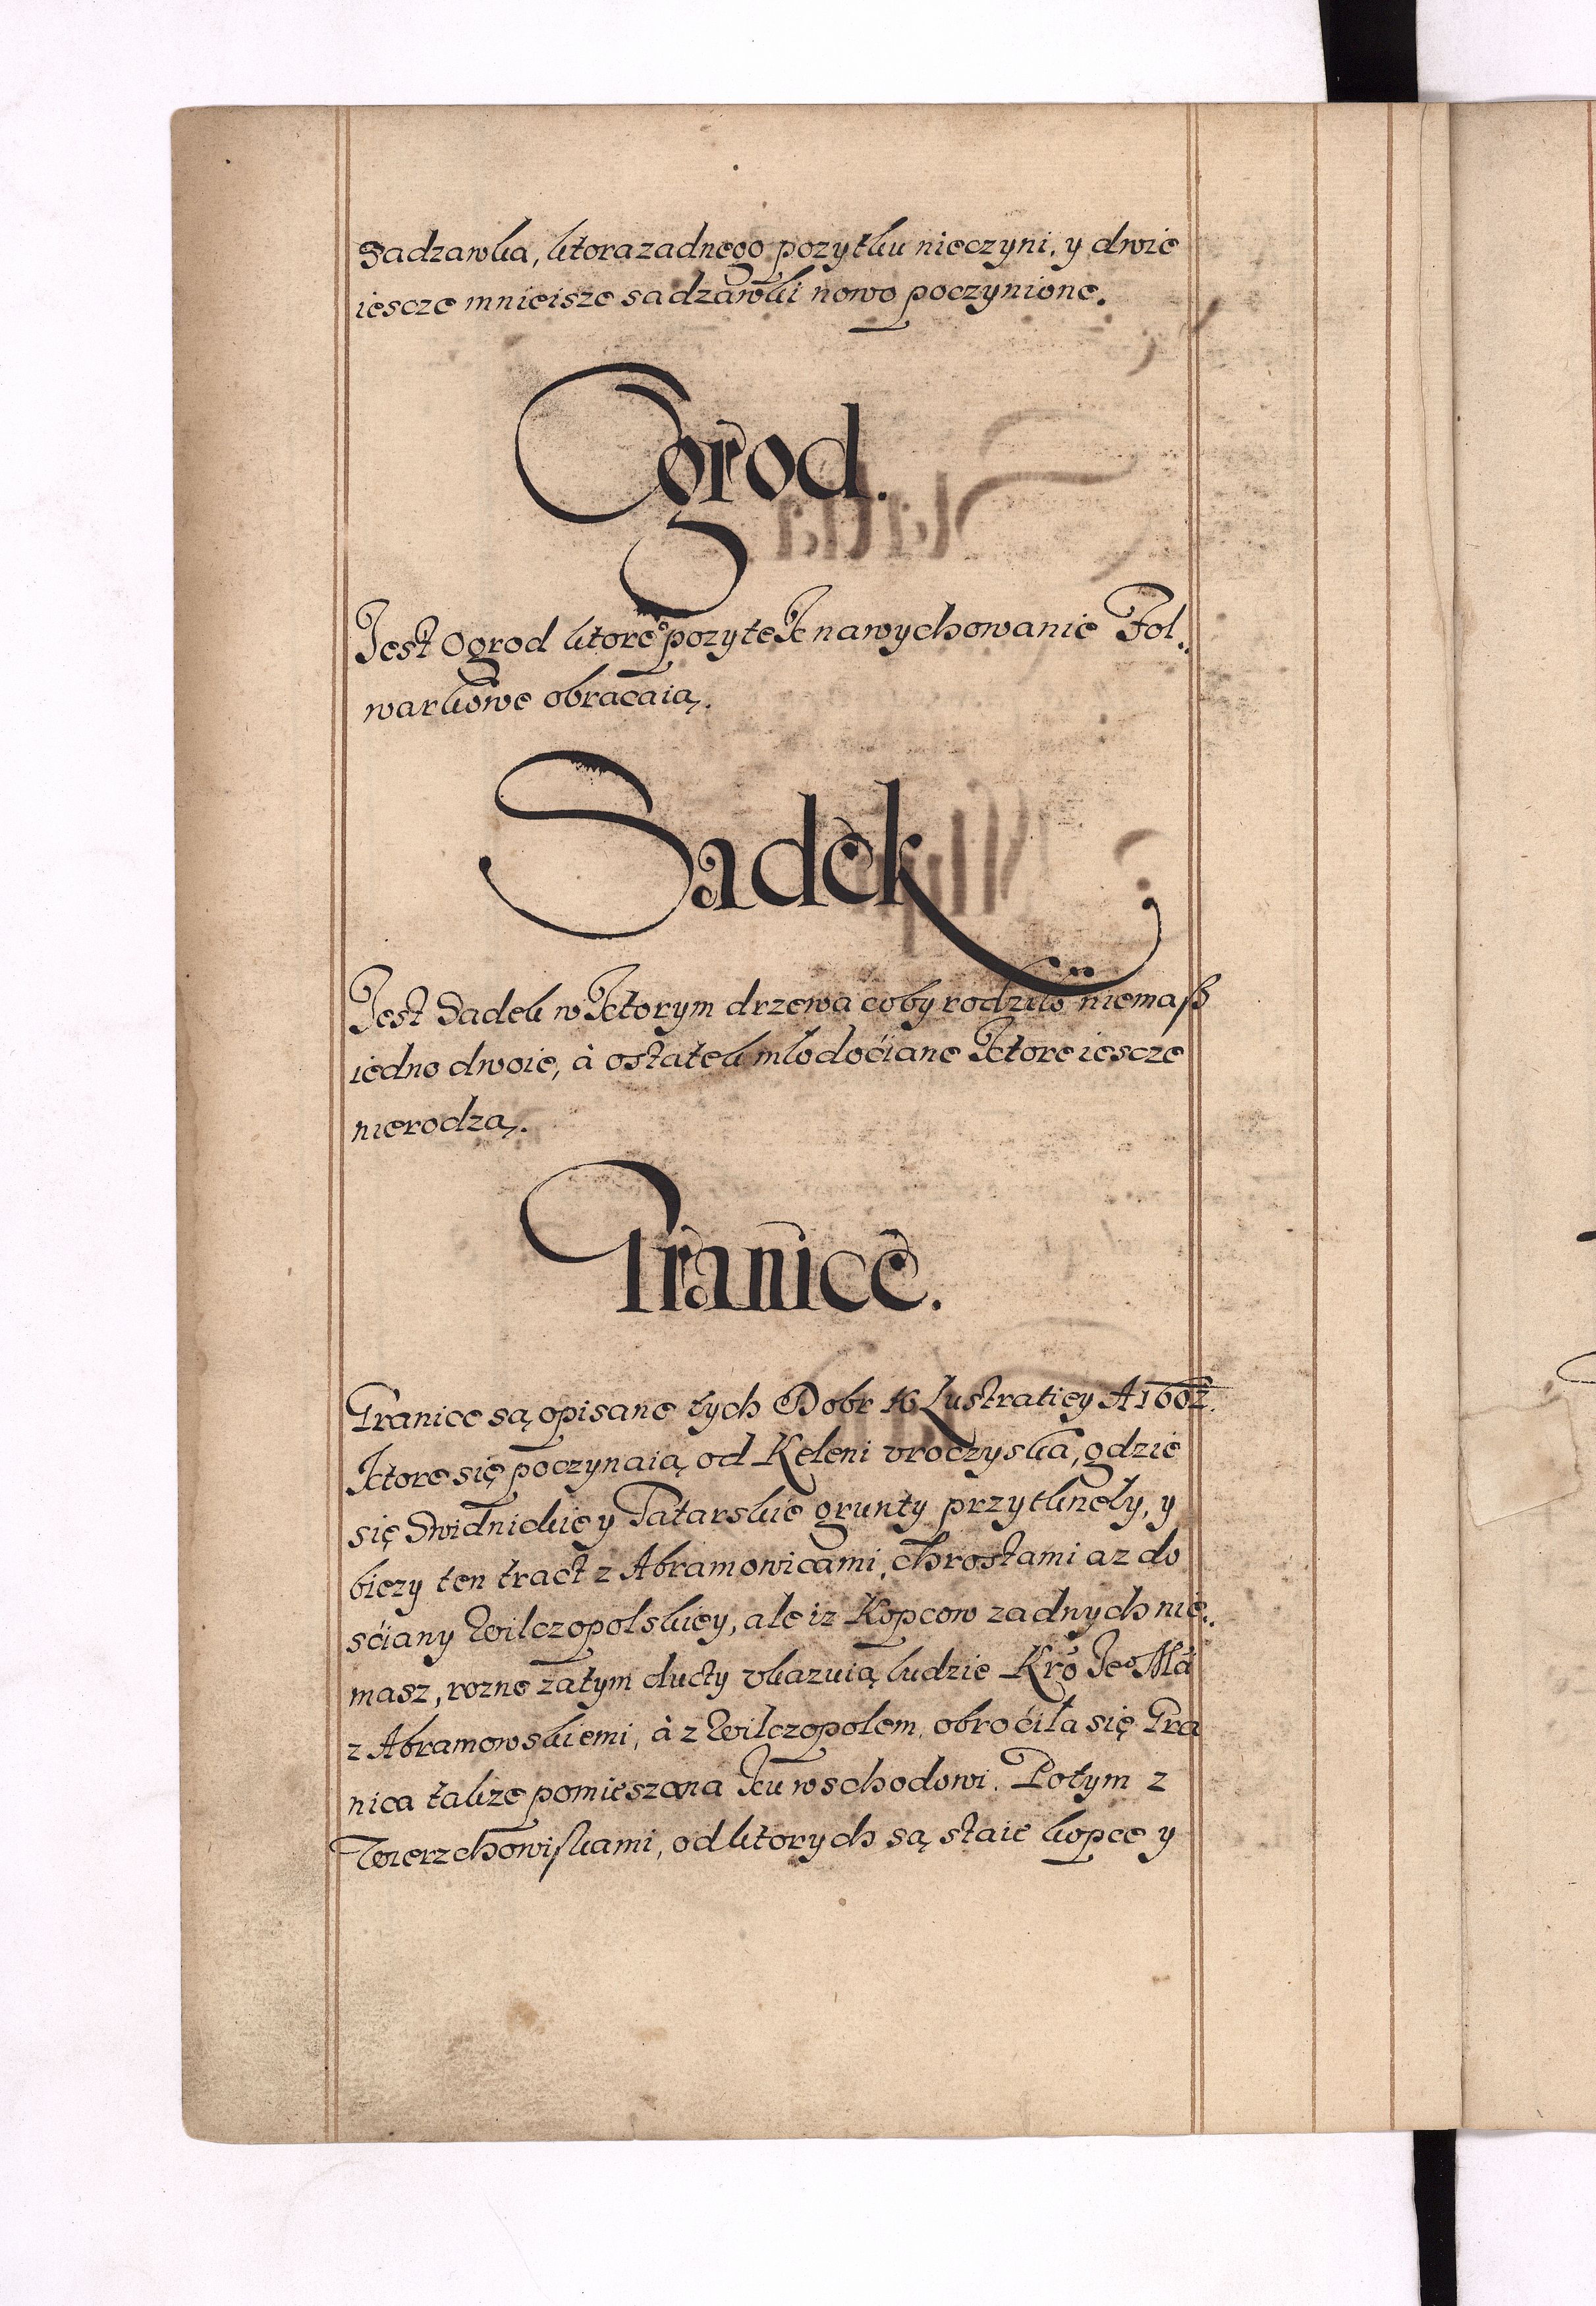 Sadzawka, ktora zadnego pozytku nieczyni, y dwie
iescze mnieisze sadzawki nowo poczynione.
Ogrod.
Jest Ogrod ktore° pozytek na wychowanie Fol..
warkowe obracaią.
Sadek
Jest Sadek w ktorym drzewa coby rodziło niemaß
iedno dwoie, à ostatek młodociane ktore iescze
nierodzą.
Granice.
Granice są opisane tych Dobr w Lustratiey A 1602.
ktore się poczynaią od Keleni vroczyska, gdzie
się Swidnickie y Tatarskie grunty przytknęły, y
bieży ten tract z Abramowicami, chrostami az do
sciany Wilczopolskiey, ale iz Kopcow zadnych nie..
masz, rozne zatym ducty vkazuią ludzie Kro Je° Mci
z Abramowskiemi, à z Wilczopolem, obrociła się Gra
nica takze pomieszana ku wschodowi. Potym z
Wierzchowiskami, od ktorych są staie kopce y